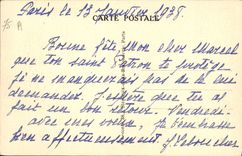 Paris le 13 Janvier 1938.
CARTE POSTALE
Bonne fête, mon cher Marcel
que ton Saint Patron te protège
je ne manquerais pas de le lui
demander. J'espère que tu as
fait un bon retour. Vendredi
avec nous. Je t'embrasse
bien affectueusement.